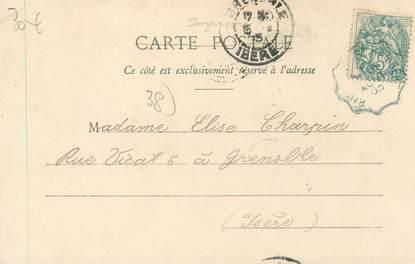 30 €
GRENOBLE
ISÈRE
CARTE POSTALE
Ce côté est exclusivement réservé à l'adresse
38)
Madame Elise Charpin
Rue Vicat 6 à Grenoble
(Isère)